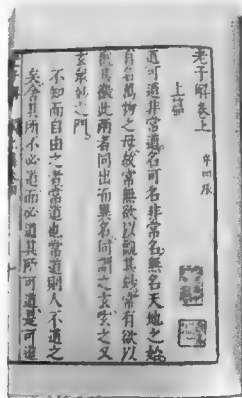 老子解卷上
上篇
道可道非常道名可名非常名無名天地之始
有名萬物之母故常無欲以觀其妙常有欲以
觀其徼此兩者同出而異名同謂之玄玄之又
玄衆妙之門
不知而自由之者常道也常道則人不道之
矣舍其所不必道而必道其所可道是可道